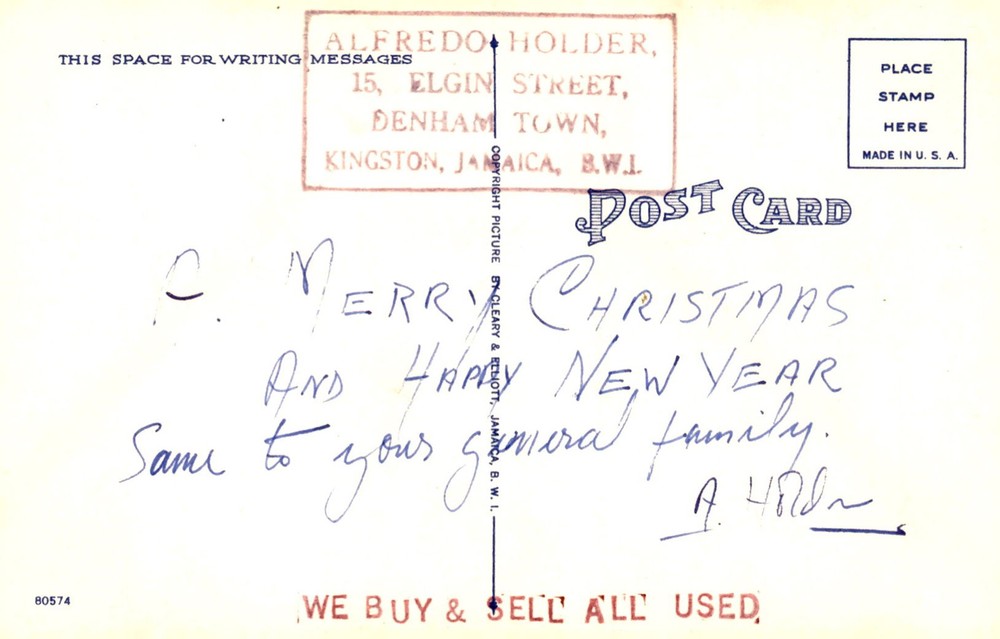 ALFREDO HOLDER,
15, ELGIN STREET,
DENHAM TOWN,
KINGSTON, JAMAICA, B.W.I.
THIS SPACE FOR WRITING MESSAGES
PLACE
STAMP
HERE
MADE IN U. S. A.
POST CARD
COPYRIGHT PICTURE BY CLEARY & ELLIOTT, JAMAICA, B. W. I.
A. MERRY CHRISTMAS
AND HAPPY NEW YEAR
Same to your general family.
A. Holder
80574
WE BUY & SELL ALL USED